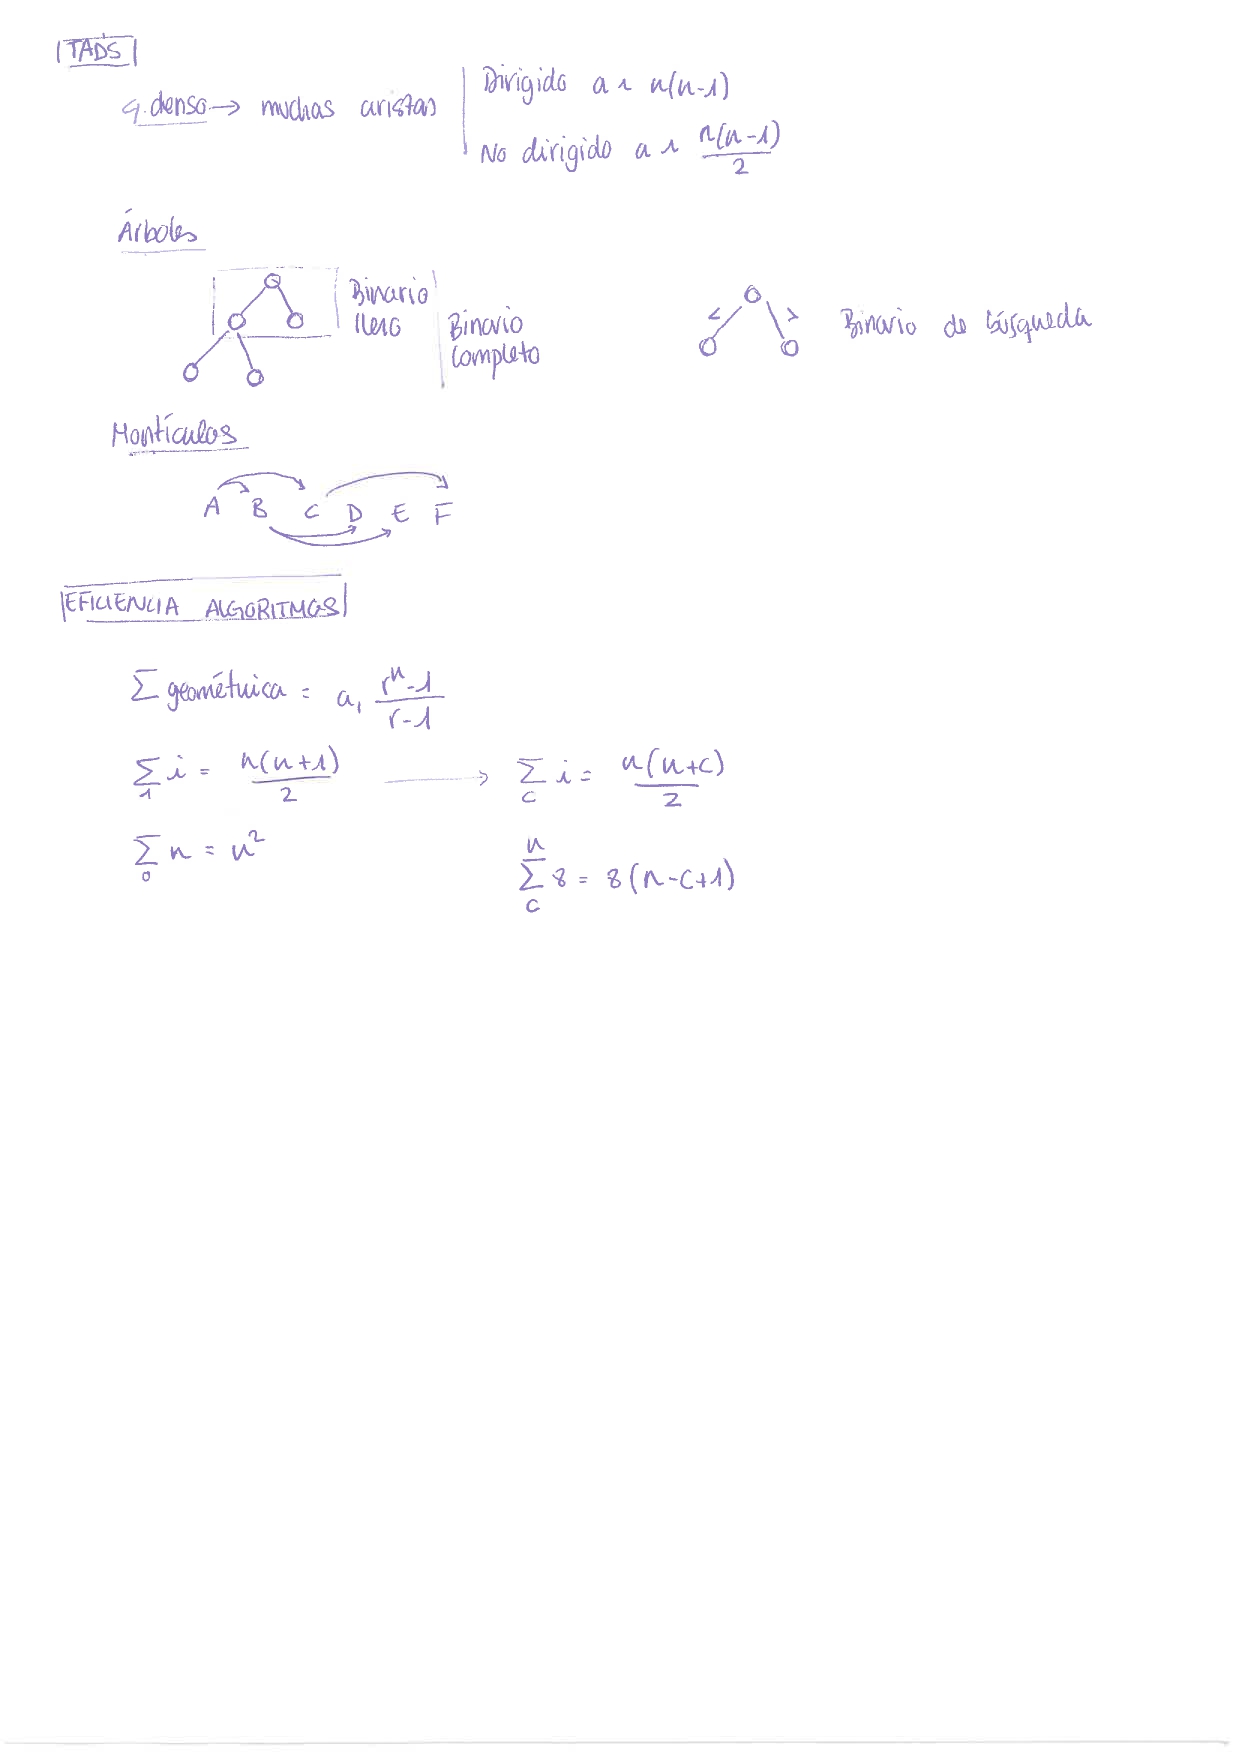 TADS
G. denso → muchas aristas
Dirigido a ~ n(n-1)
No dirigido a ~ n(n-1)/2
Árboles
Binario lleno
Binario completo
< > Binario de búsqueda
Montículos
A B C D E F
EFICIENCIA ALGORITMOS
Σ geométrica = a₁ (rⁿ-1)/(r-1)
Σ₁ i = n(n+1)/2 → Σ_c i = n(n+c)/2
Σ₀ n = n²
Σ_c^n 8 = 8(n-c+1)